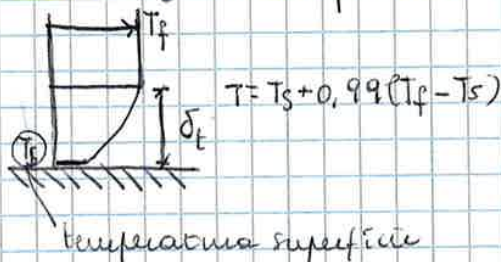 Tf
T = Ts + 0,99 (Tf - Ts)
δt
Ts
temperatura superficie